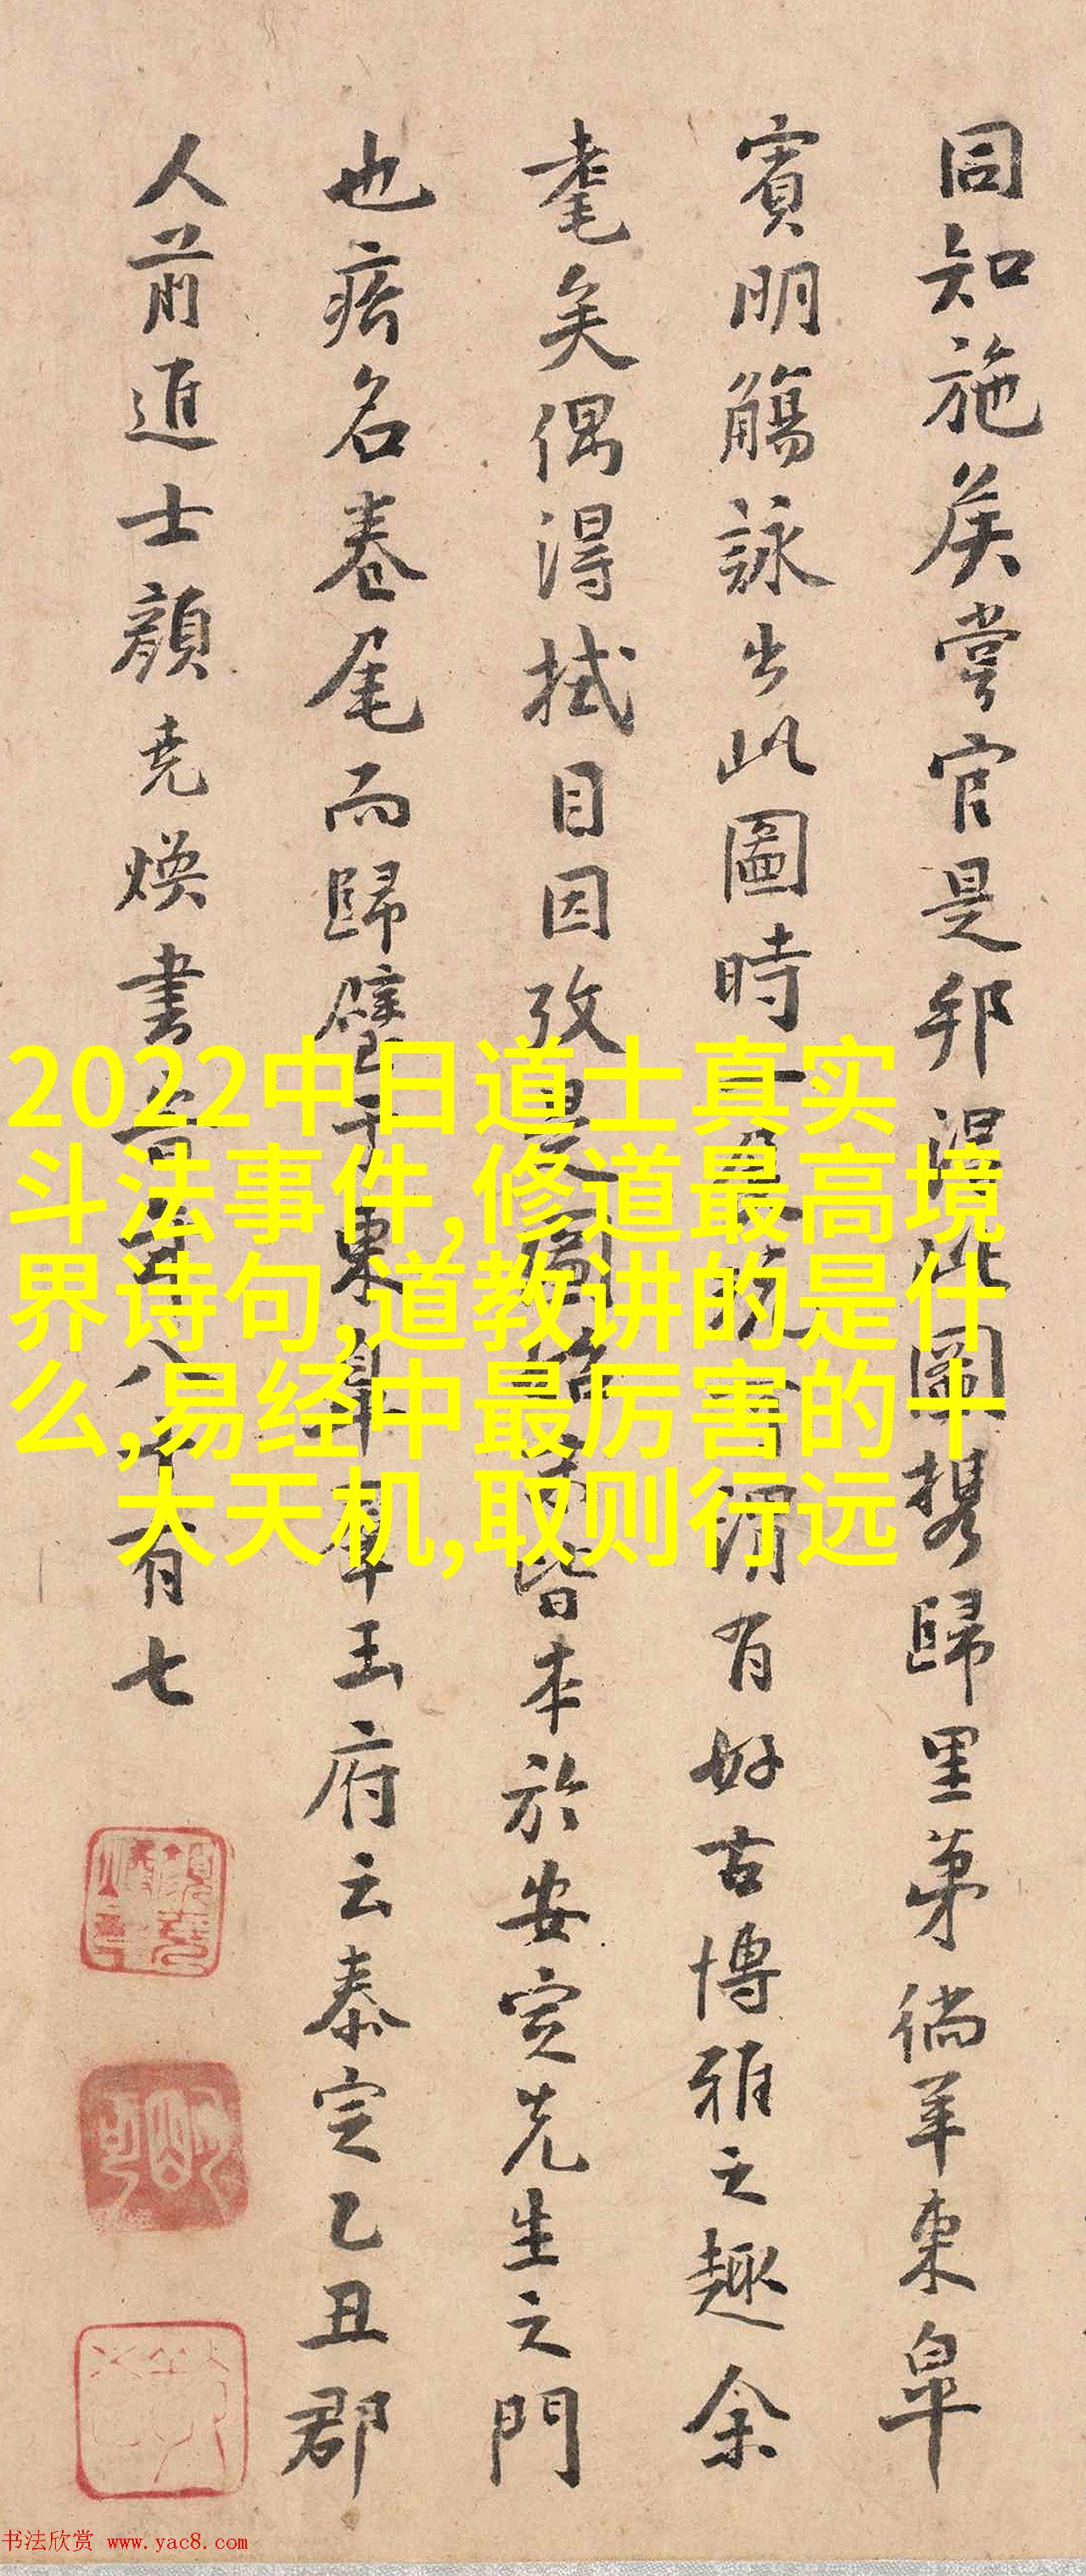 同知施侯嘗官是邦得此圖携歸里第徜羊東皐
賓明觴詠出此圖時謂有好古博雅之趣余
耄矣偶得拭目因攷是圖皆本於安定先生之門
也瘩名卷尾而歸璧于東斜群玉府云泰定乙丑郡
人前進士顔堯煥書八十有七
2022中日道士真实
斗法事件,修道最高境
界诗句,道教讲的是什
么,易经中最厉害的十
大天机,取则行远
书法欣赏 www.yac8.com